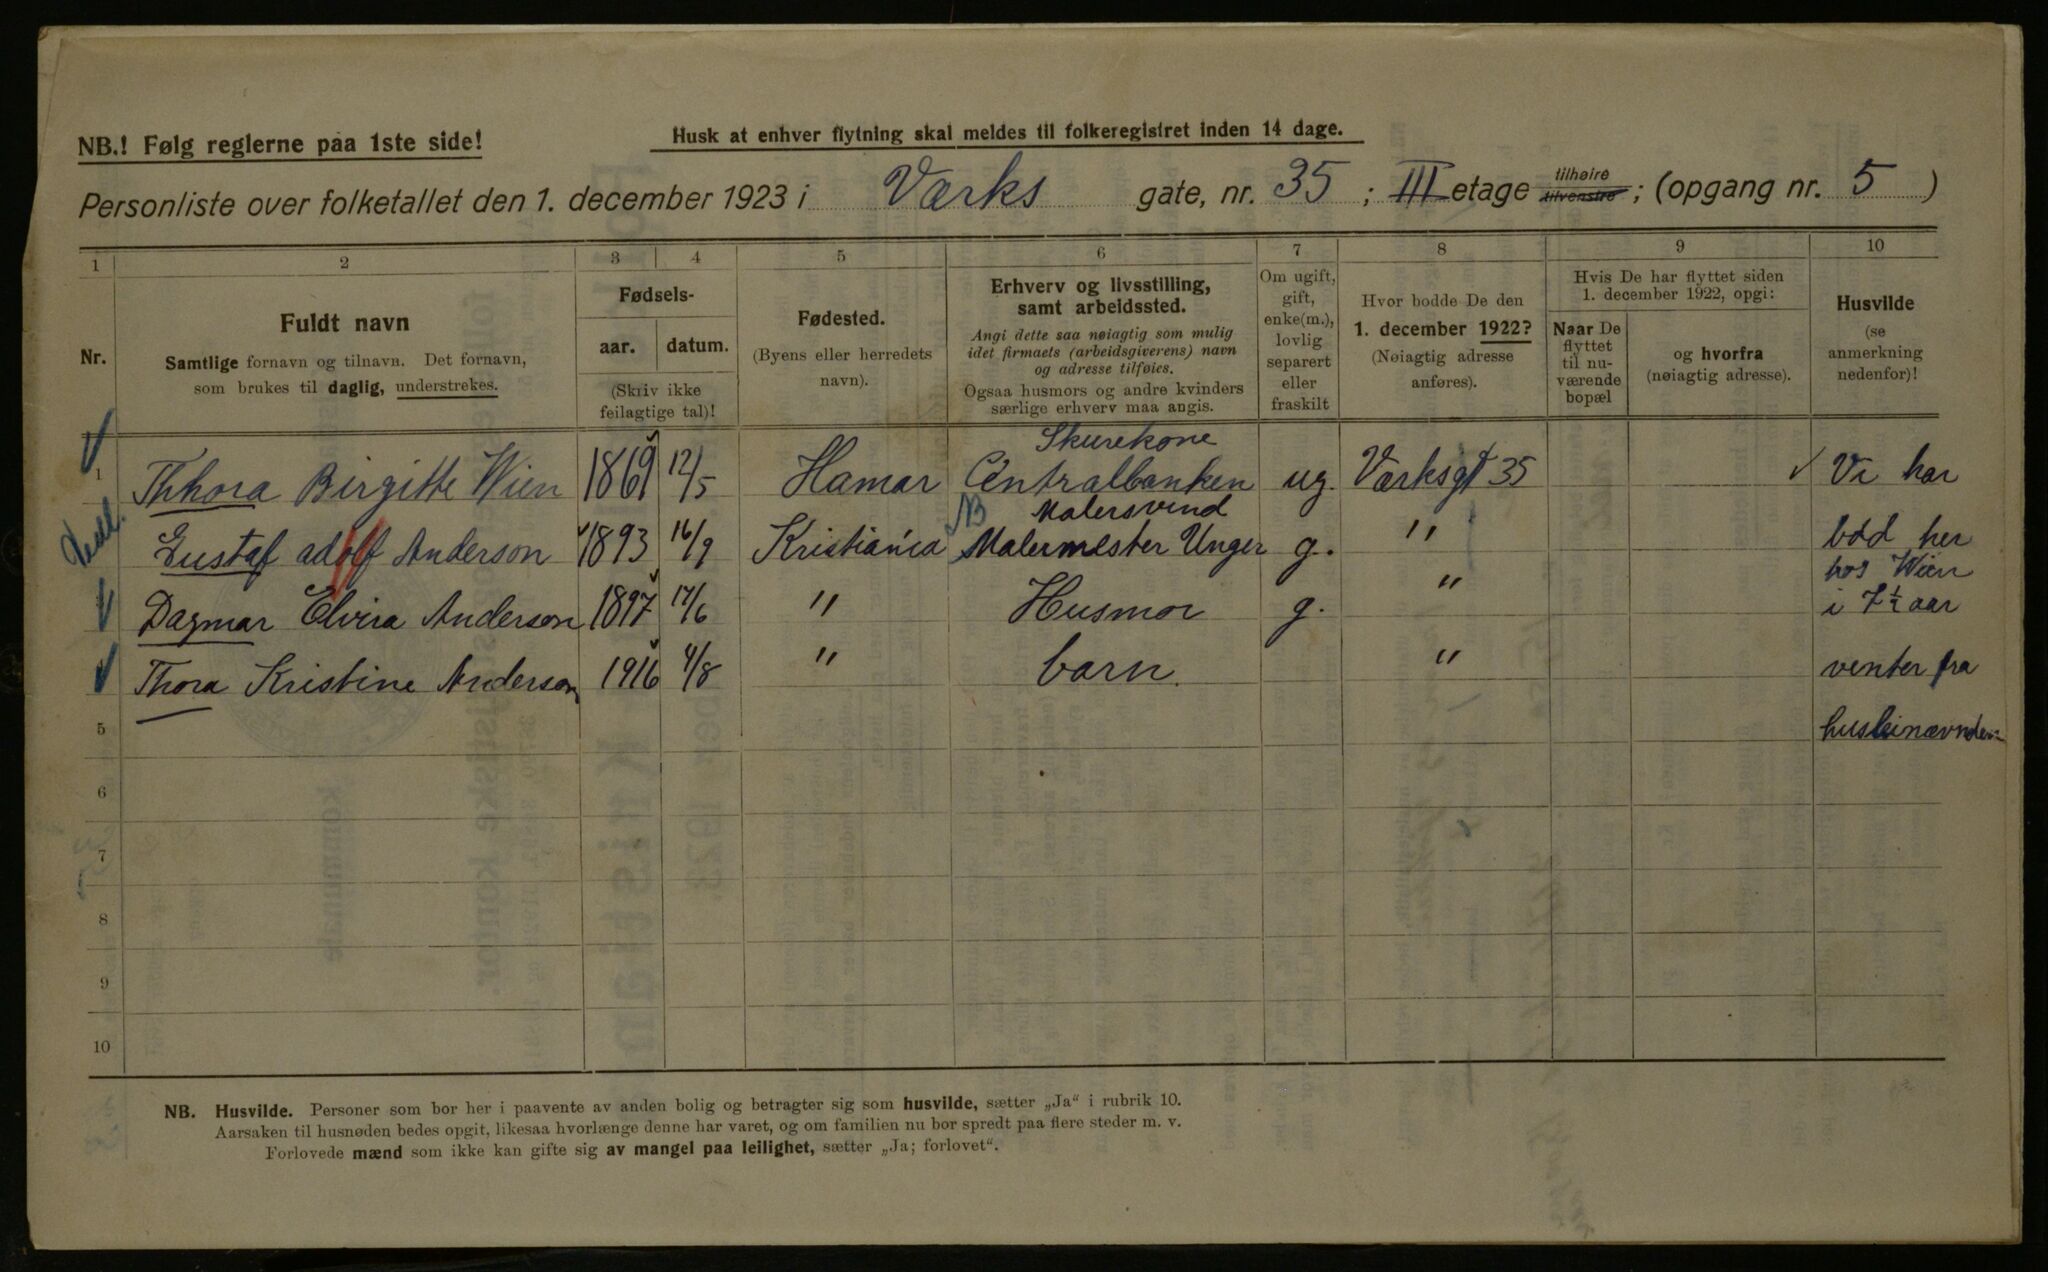 NB.! Følg reglerne paa 1ste side!
Husk at enhver flytning skal meldes til folkeregistret inden 14 dage.
Personliste over folketallet den 1. december 1923 i Værks gate, nr. 35 ; III etage tilhøire tilvenstre ; (opgang nr. 5 )
1 2 3 4 5 6 7 8 9 10
Nr.
Fuldt navn
Samtlige fornavn og tilnavn. Det fornavn,
som brukes til daglig, understrekes.
Fødsels-
aar. datum.
(Skriv ikke
feilagtige tal)!
Fødested.
(Byens eller herredets
navn).
Erhverv og livsstilling,
samt arbeidssted.
Angi dette saa nøiagtig som mulig
idet firmaets (arbeidsgiverens) navn
og adresse tilføies.
Ogsaa husmors og andre kvinders
særlige erhverv maa angis.
Om ugift,
gift,
enke(m.),
lovlig
separert
eller
fraskilt
Hvor bodde De den
1. december 1922?
(Nøiagtig adresse
anføres).
Hvis De har flyttet siden
1. december 1922, opgi:
Naar De
flyttet
til nu-
værende
bopæl
og hvorfra
(nøiagtig adresse).
Husvilde
(se
anmerkning
nedenfor)!
Skurekone
1 Thhora Birgitte Wien 1869 12/5 Hamar Centralbanken ug. Værksgt 35 Vi har
NB Malersvend
Gustaf adolf Anderson 1893 16/9 Kristiania Malermester Unger g. " bod her
hos Wien
Dagmar Elvira Anderson 1897 17/6 " Husmor g. " i 7½ aar
Thora Kristine Anderson 1916 4/8 " barn. " venter fra
5 husleinævnden
6
7
8
9
10
NB. Husvilde. Personer som bor her i paavente av anden bolig og betragter sig som husvilde, sætter „Ja“ i rubrik 10.
Aarsaken til husnøden bedes opgit, likesaa hvorlænge denne har varet, og om familien nu bor spredt paa flere steder m. v.
Forlovede mænd som ikke kan gifte sig av mangel paa leilighet, sætter „Ja; forlovet“.